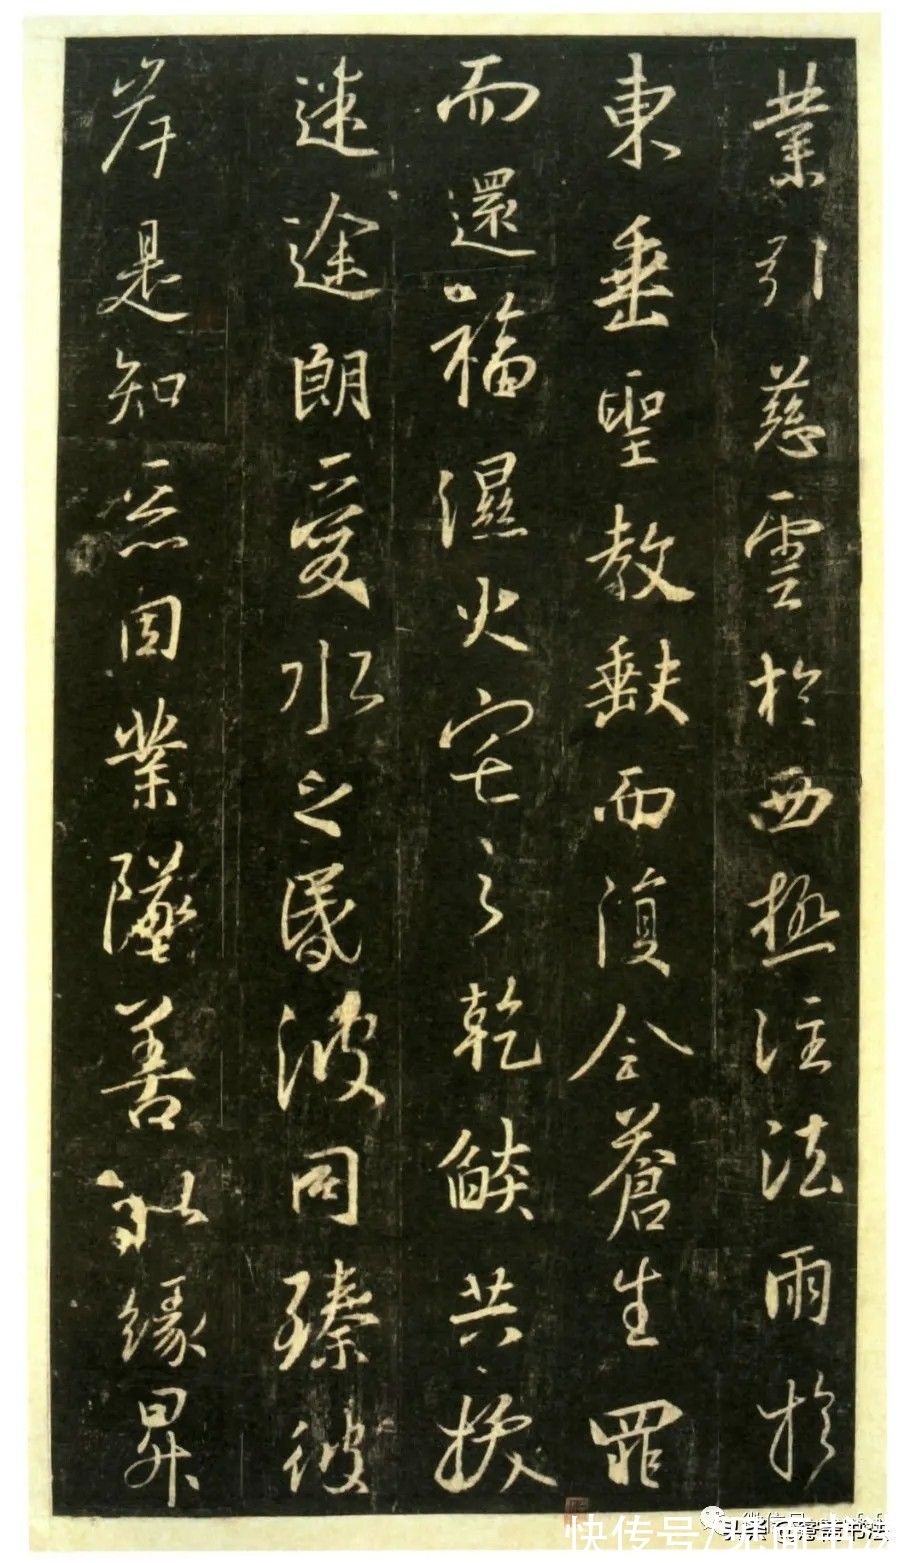 業引慈雲於西極注法雨於
東垂聖教缺而復全蒼生罪
而還福濕火宅之乾燄共拔
迷途朗愛水之昏波同臻彼
岸是知惡因業墜善以緣昇
快传号/